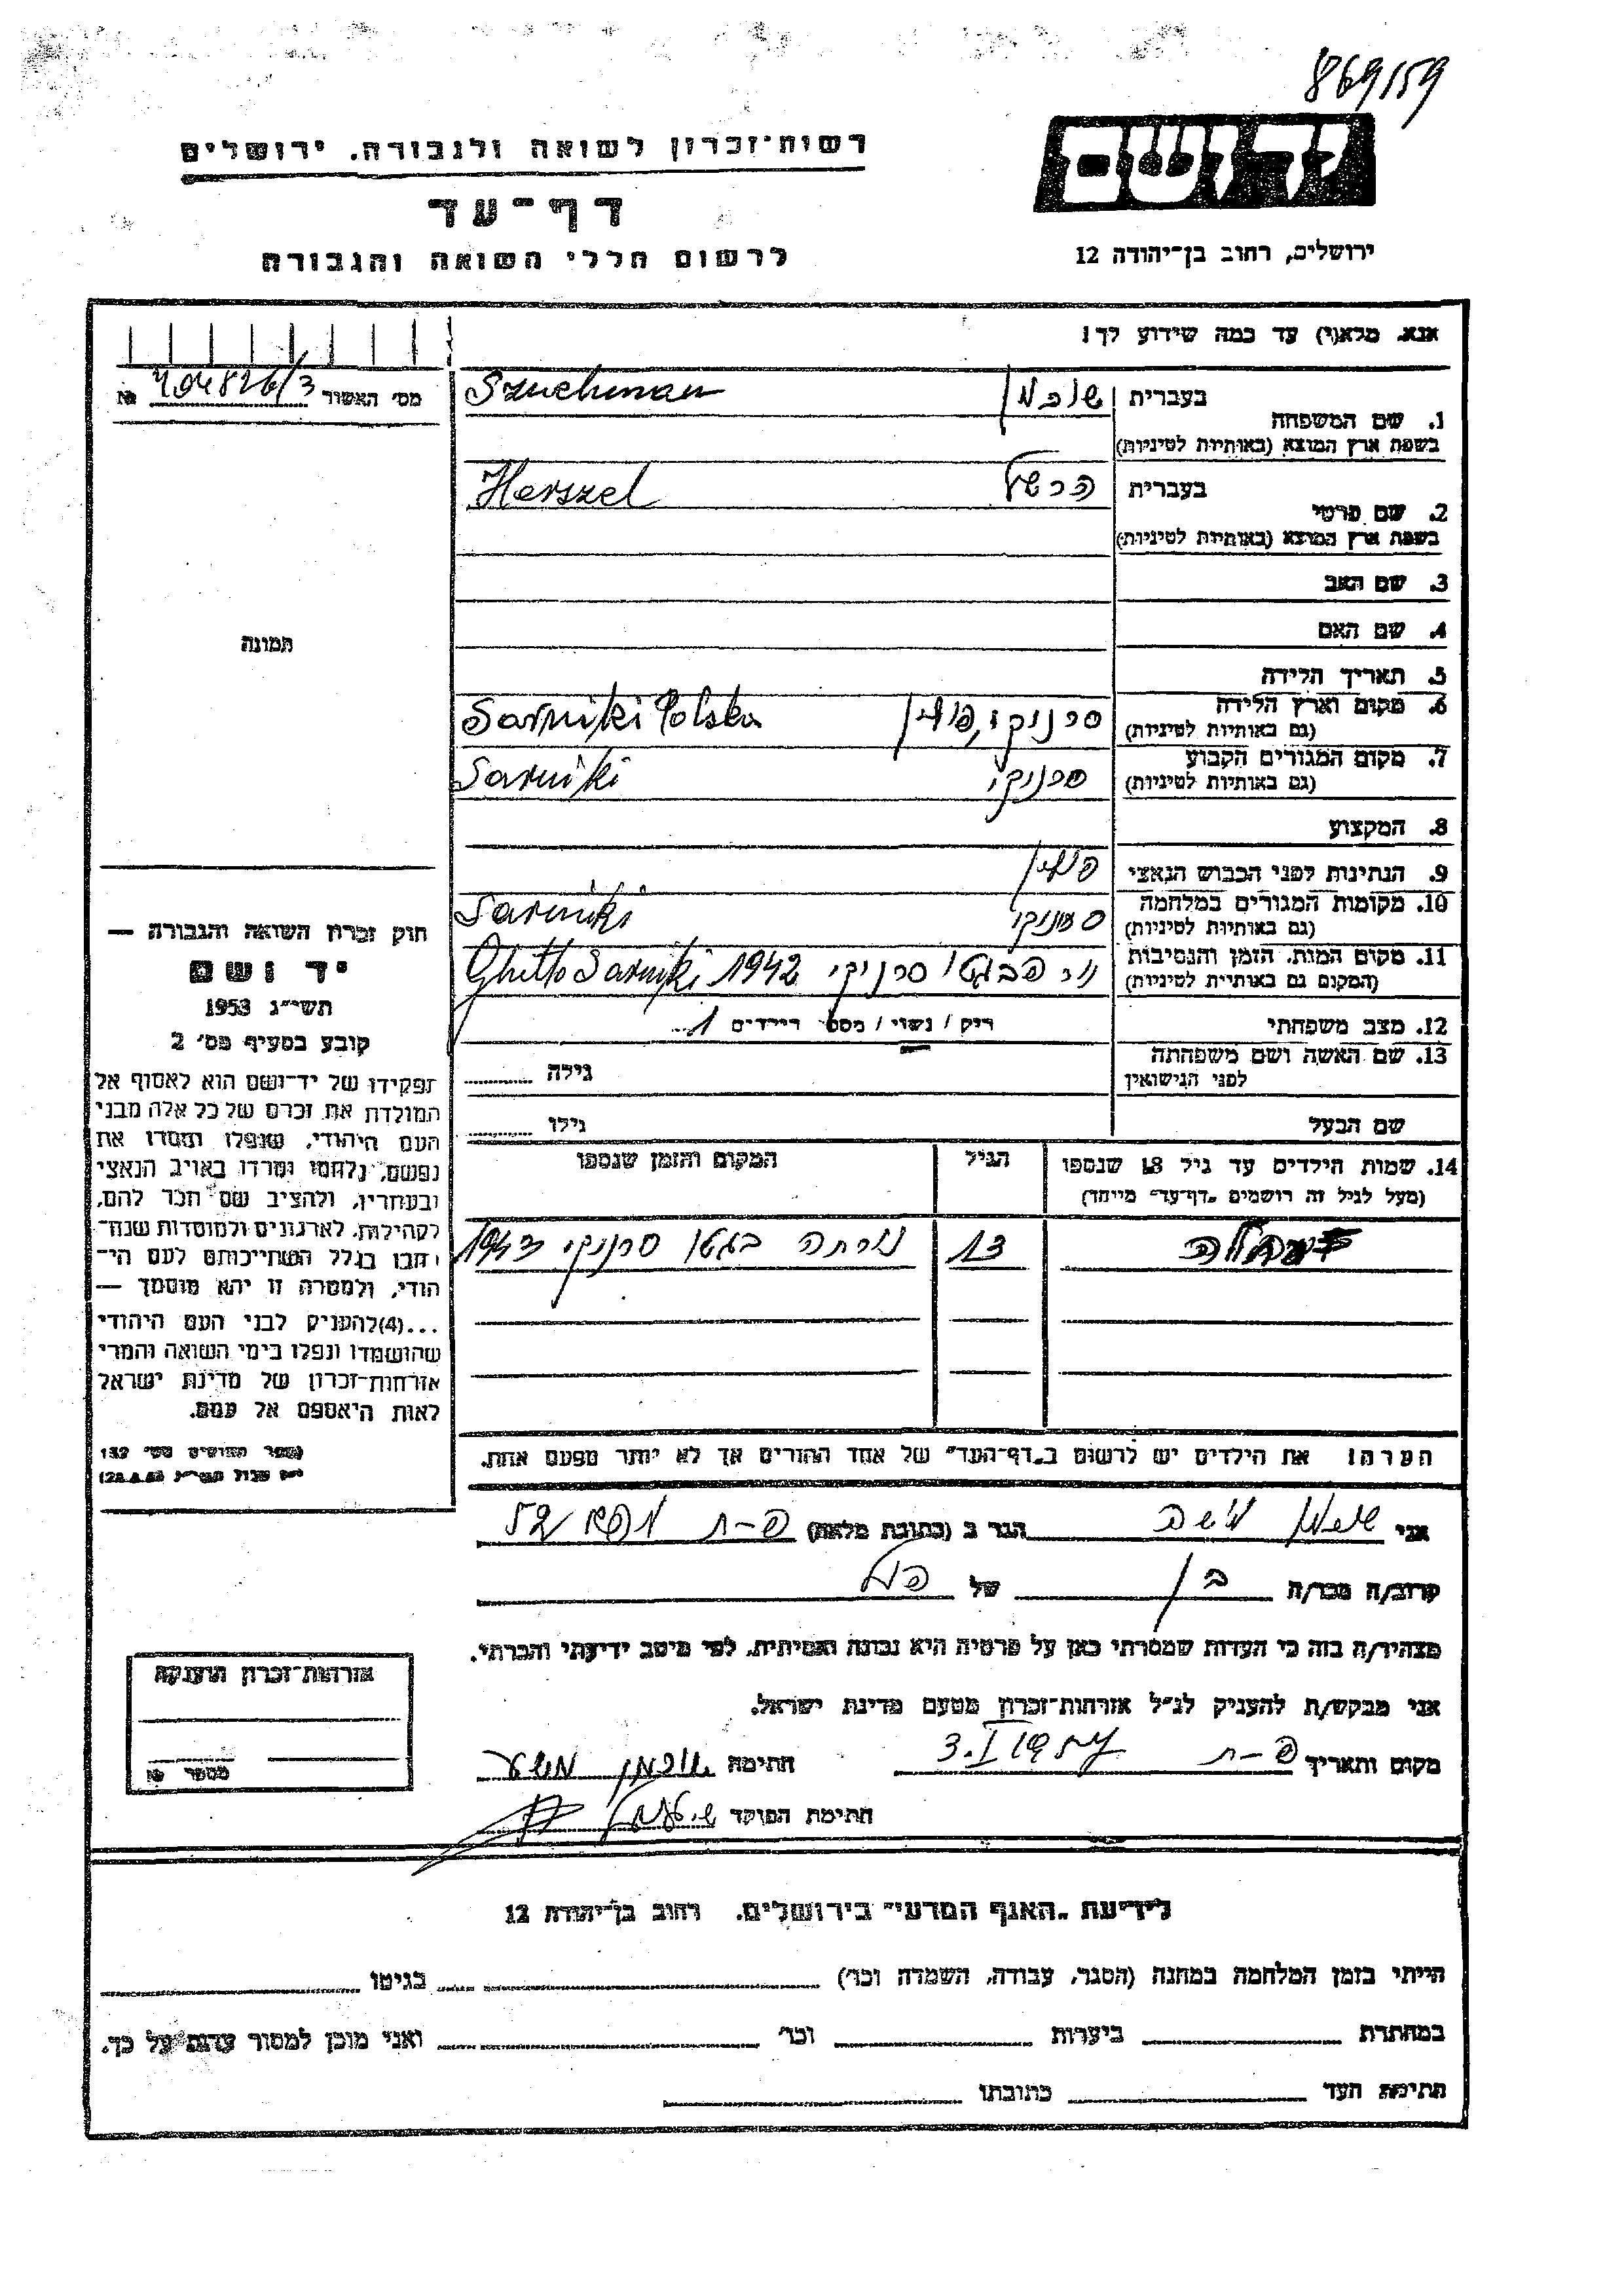 869/59
רשות-זכרון לשואה ולגבורה. ירושלים
יד ושם
דף-עד
לרשום חללי השואה והגבורה
ירושלים, רחוב בן-יהודה 12
אנא, מלא(י) עד כמה שידוע לך!
מס׳ האשור 404826/3 №
1. שם המשפחה בעברית שוכמן Szuchman
בשפת ארץ המוצא (באותיות לטיניות)
2. שם פרטי בעברית הרשל Herszel
בשפת ארץ המוצא (באותיות לטיניות)
3. שם האב
4. שם האם
תמונה
5. תאריך הלידה
6. מקום וארץ הלידה סרניקי, פולין Sarniki Polska
(גם באותיות לטיניות)
7. מקום המגורים הקבוע סרניקי Sarniki
(גם באותיות לטיניות)
8. המקצוע
9. הנתינות לפני הכבוש הנאצי פולין
10. מקומות המגורים במלחמה סרניקי Sarniki
(גם באותיות לטיניות)
11. מקום המות, הזמן והנסיבות בגטו סרניקי 1942 Ghitto Sarniki
(המקום גם באותיות לטיניות)
12. מצב משפחתי רוק / נשוי / מספר הילדים 1
13. שם האשה ושם משפחתה גילה
לפני הנישואין
שם הבעל גילו
14. שמות הילדים עד גיל 18 שנספו הגיל המקום והזמן שנספו
(מעל לגיל זה רושמים ״דף-עד״ מיוחד)
13 בגטו סרניקי
הערה: את הילדים יש לרשום ב״דף-העד״ של אחד ההורים אך לא יותר מפעם אחת.
חוק זכרון השואה והגבורה —
יד ושם
תשי״ג 1953
קובע בסעיף מס׳ 2
תפקידו של יד-ושם הוא לאסוף אל
המולדת את זכרם של כל אלה מבני
העם היהודי, שנפלו ומסרו את
נפשם, נלחמו ומרדו באויב הנאצי
ובעוזריו, ולהציב שם וזכר להם,
לקהילות, לארגונים ולמוסדות שנח-
רבו בגלל השתייכותם לעם הי-
הודי, ולמטרה זו יהא מוסמך —
...(4) להעניק לבני העם היהודי
שהושמדו ונפלו בימי השואה והמרי
אזרחות-זכרון של מדינת ישראל
לאות היאספם אל עמם.
(ספר החוקים מס׳ 132
אני הגר ב (כתובת מלאה) פ-ת
קרוב/ה מכר/ה בן של
מצהיר/ה בזה כי העדות שמסרתי כאן על פרטיה היא נכונה ואמיתית, לפי מיטב ידיעתי והכרתי.
אני מבקש/ת להעניק לנ״ל אזרחות-זכרון מטעם מדינת ישראל.
מקום ותאריך פ-ת 3.I 1957 חתימה שוכמן
חתימת הפוקד
אזרחות-זכרון הוענקה
מספר №
לידיעת ״האגף המדעי״ בירושלים. רחוב בן-יהודה 12
הייתי בזמן המלחמה במחנה (הסגר, עבודה, השמדה וכו׳) בגיטו
במחתרת ביערות וכו׳ ואני מוכן למסור עדות על כך.
חתימת העד כתובתו